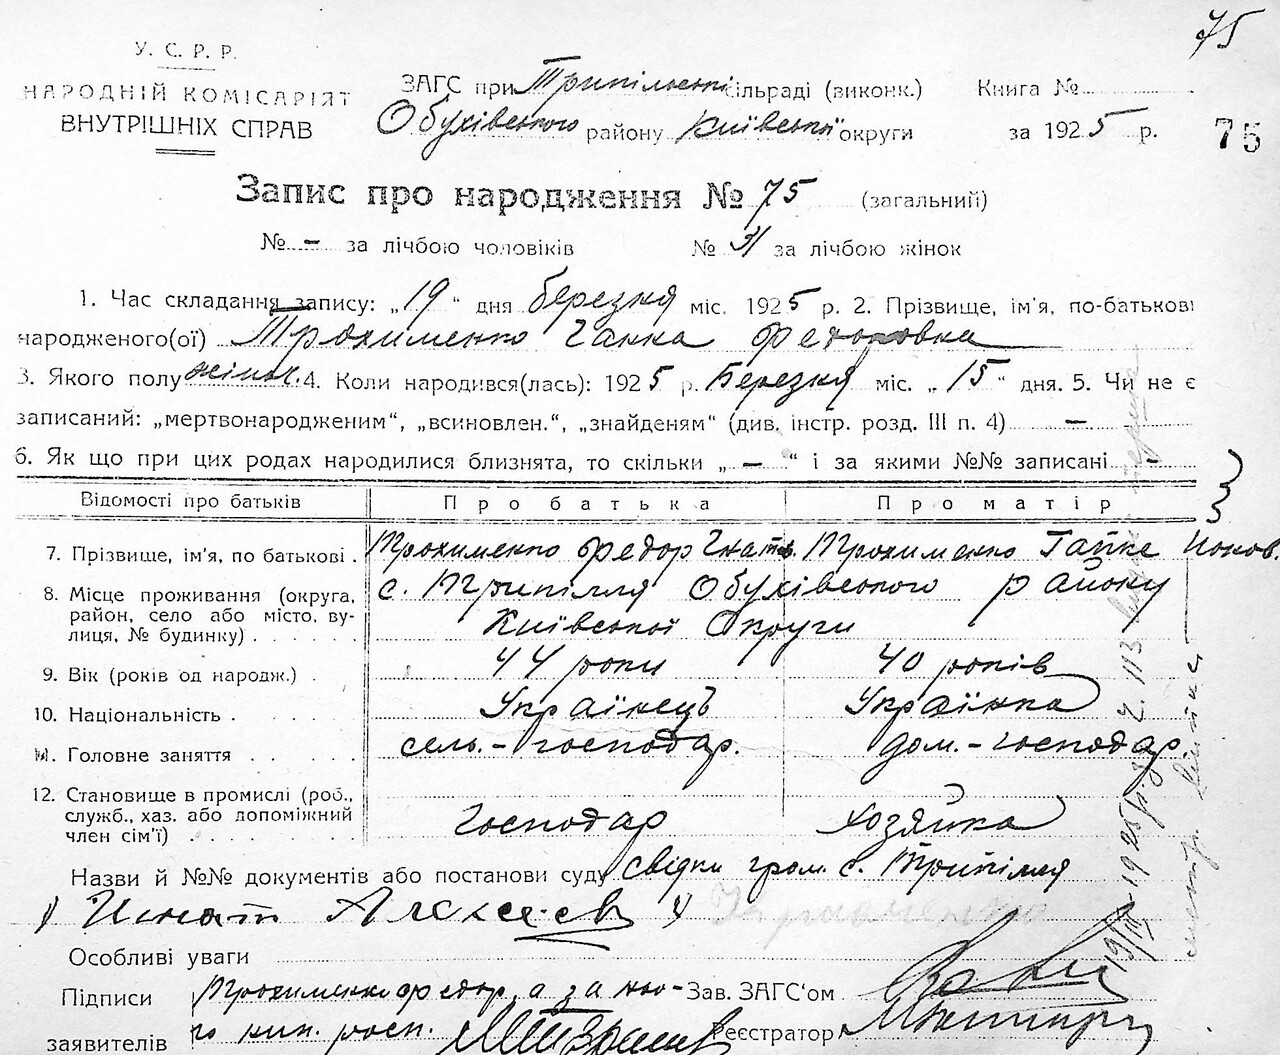 75
У. С. Р. Р.
НАРОДНІЙ КОМІСАРІЯТ
ВНУТРІШНІХ СПРАВ
ЗАГС при Трипільській сільраді (виконк.) Книга №
Обухівського району Київської округи за 1925 р. 75
Запис про народження № 75 (загальний)
№ – за лічбою чоловіків № 31 за лічбою жінок
1. Час складання запису: „19“ дня березня міс. 1925 р. 2. Прізвище, ім'я, по-батькові
народженого(ої) Трохименко Ганна Федоровна
3. Якого полу жіноч. 4. Коли народився(лась): 1925 р. Березня міс. „15“ дня. 5. Чи не є
записаний: „мертвонародженим“, „всиновлен.“, „знайденям“ (див. інстр. розд. III п. 4) –
6. Як що при цих родах народилися близнята, то скільки „–“ і за якими №№ записані –
Відомості про батьків Про батька Про матір
7. Прізвище, ім'я, по батькові . Трохименко Федор Гнатов. Трохименко Гапка
8. Місце проживання (округа, район, село або місто, вулиця, № будинку) . . . . . с. Трипілля Обухівського району
Київської Округи
9. Вік (років од народж.) . 44 роки 40 років
10. Національність . . . . . Українець Українка
11. Головне заняття . . . . . сель.-господар. дом.-господар
12. Становище в промислі (роб., служб., хаз. або допоміжний член сім'ї) . . . . . Господар Хозяйка
Назви й №№ документів або постанови суду свідки гром. с. Трипілля
Игнат Алексеев
Особливі уваги
Підписи Трохименко Федор, а за Зав. ЗАГС'ом
заявителів Реєстратор